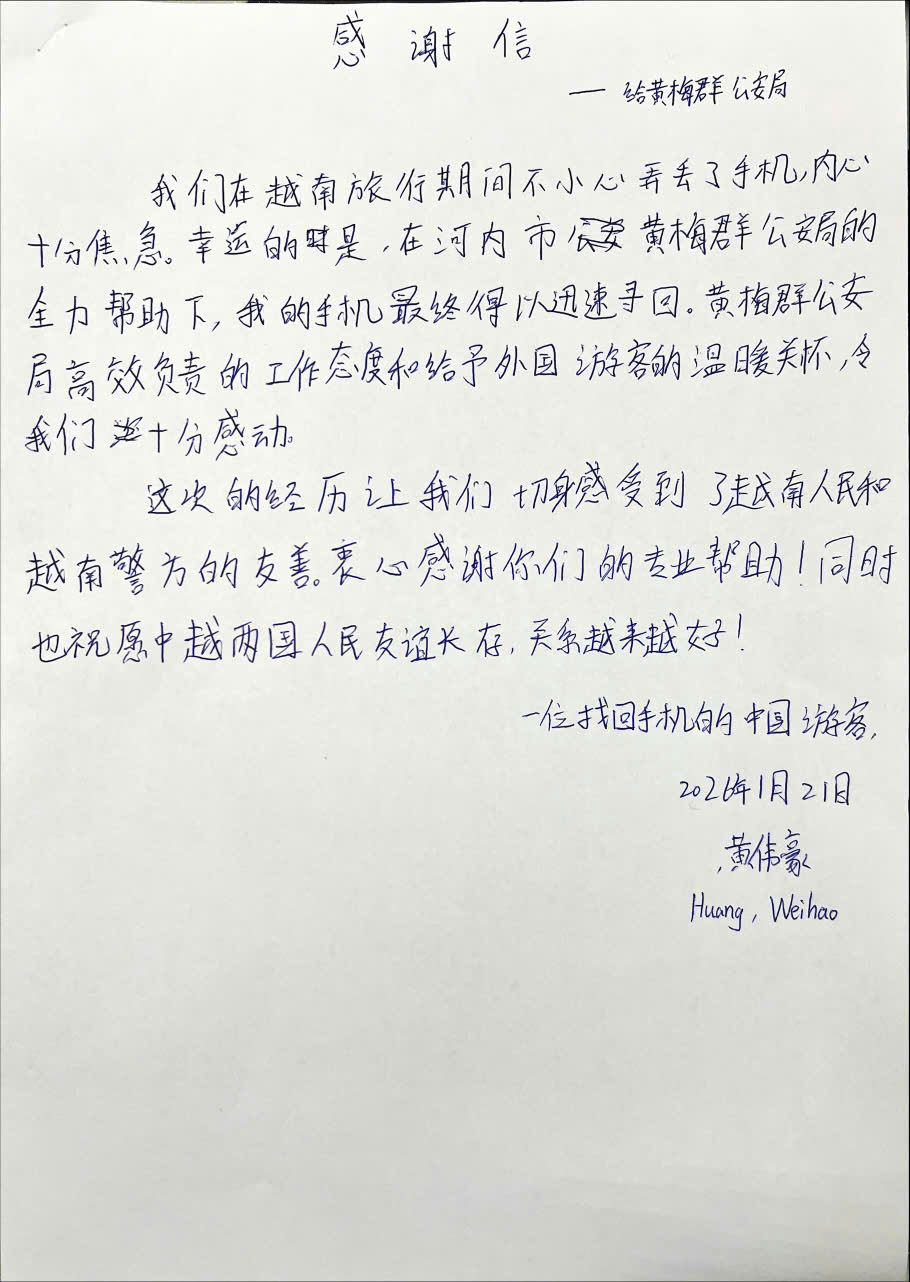 感谢信
— 给黄梅群公安局
我们在越南旅行期间不小心弄丢了手机,内心
十分焦急。幸运的是,在河内市黄梅群公安局的
全力帮助下,我的手机最终得以迅速寻回。黄梅群公安
局高效负责的工作态度和给予外国游客的温暖关怀,令
我们十分感动。
这次的经历让我们切身感受到了越南人民和
越南警方的友善。衷心感谢你们的专业帮助!同时
也祝愿中越两国人民友谊长存,关系越来越好!
一位找回手机的中国游客,
2026年1月21日
黄伟豪
Huang, Weihao